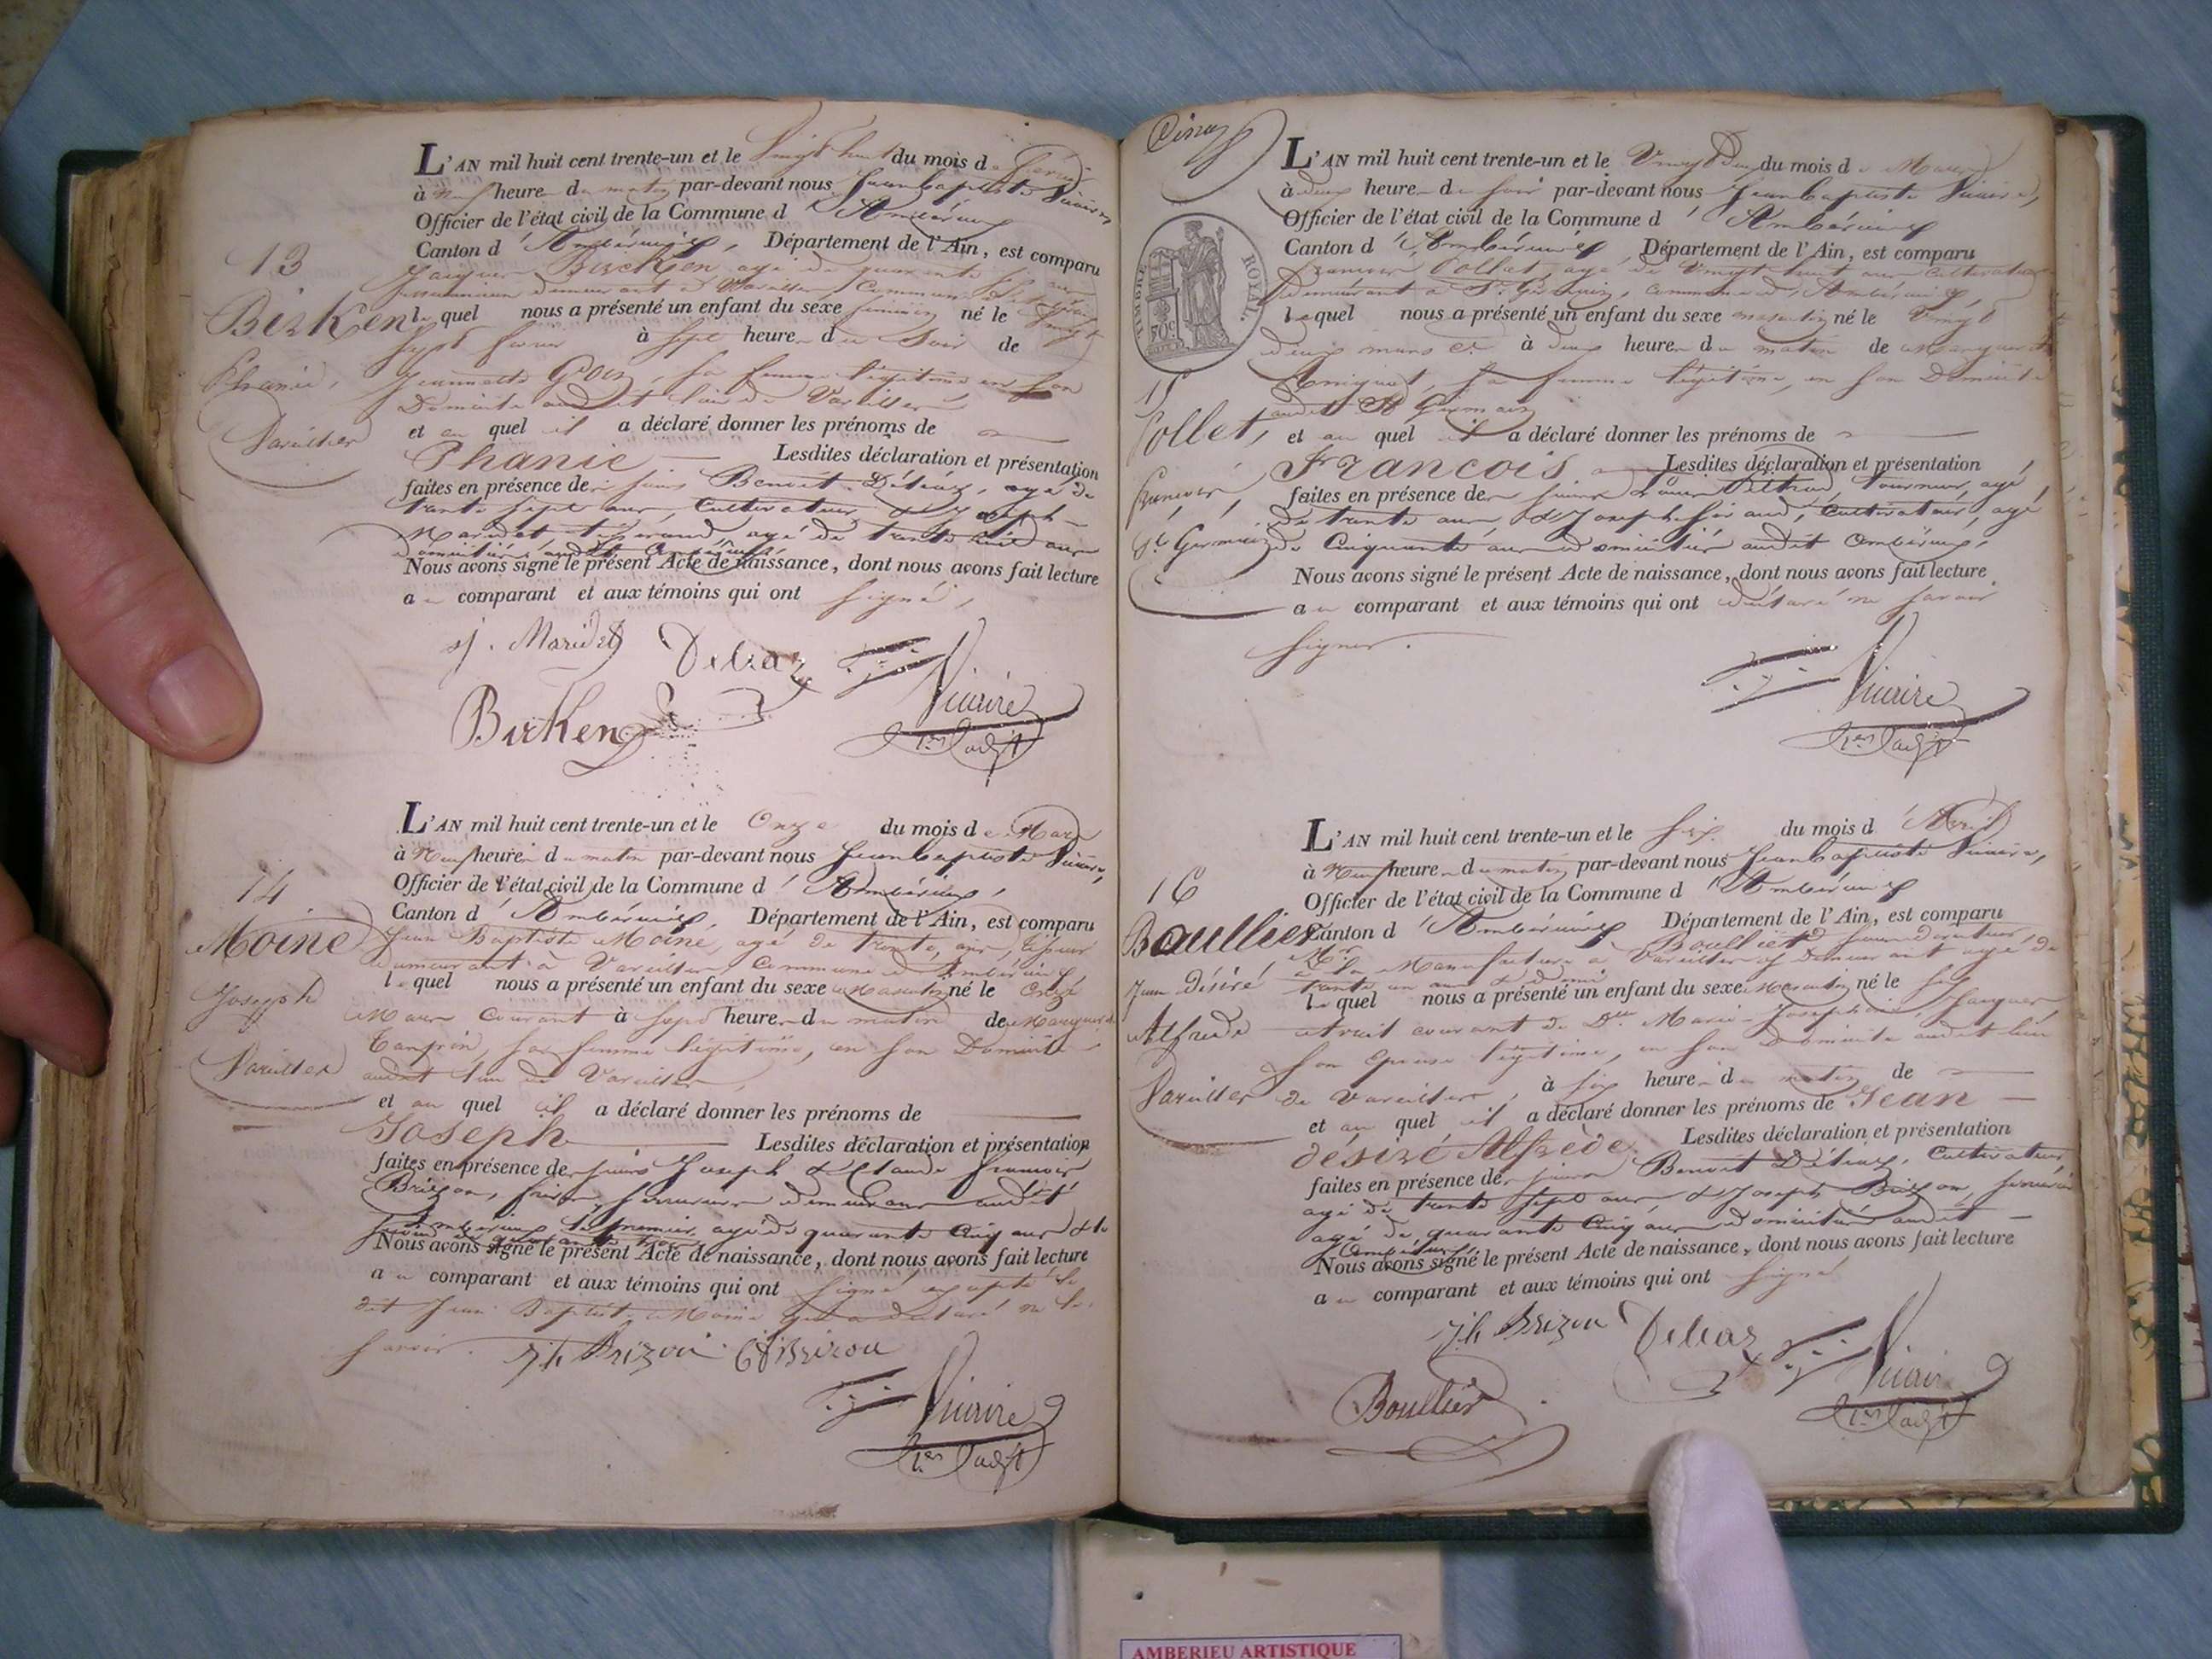 13
Birken
Phanie,
Vareilles
L'AN mil huit cent trente-un et le Vingt huit du mois de février
à neuf heure du matin par-devant nous Jean Baptiste Vicaire
Officier de l'état civil de la Commune d'Ambérieux
Canton d'Ambérieux, Département de l'Ain, est comparu
Jacques Birken, agé de quarante
demeurant à Vareilles, Commune d
lequel nous a présenté un enfant du sexe féminin né le vingt
sept février à sept heure du Soir de
Jeannette Goy, sa femme légitime en son
Domicile audit lieu de Vareilles
et au quel il a déclaré donner les prénoms de
Phanie Lesdites déclaration et présentation
faites en présence de sieurs Benoit Déléaz, agé de
trente sept ans, Cultivateur & Joseph
Maridet tisserand, agé de trente huit ans
domiciliés audit Ambérieux
Nous avons signé le présent Acte de naissance, dont nous avons fait lecture
au comparant et aux témoins qui ont signé,
j. Maridet Deleaz
Birken Vicaire
1er adjt
14
Moine
Joseph
Vareilles
L'AN mil huit cent trente-un et le Onze du mois de Mars
à Neuf heure du matin par-devant nous Jean Baptiste Vicaire,
Officier de l'état civil de la Commune d'Ambérieux,
Canton d'Ambérieux, Département de l'Ain, est comparu
Jean Baptiste Moine, agé de trente ans,
demeurant à Vareilles, Commune d'Ambérieux,
lequel nous a présenté un enfant du sexe Masculin né le Onze
Mars Courant à sept heure du matin de Marguerite
Tanfrin, sa femme légitime, en son Domicile
audit lieu de Vareilles,
et au quel il a déclaré donner les prénoms de
Joseph Lesdites déclaration et présentation
faites en présence de sieurs Joseph & Claude françois
Brizon, frères, serruriers demeurans audit
Ambérieux le premier agé de quarante Cinq ans & le
second de quarante trois
Nous avons signé le présent Acte de naissance, dont nous avons fait lecture
au comparant et aux témoins qui ont signé excepté le
dit Jean Baptiste Moine qui a déclaré ne le
savoir. Jh Brizon Cf Brizon
Vicaire
1er adjt
Cinq
TIMBRE ROYAL.
15
Collet,
François,
St Germain
L'AN mil huit cent trente-un et le Vingt Deux du mois de Mars
à deux heure du soir par-devant nous Jean Baptiste Vicaire,
Officier de l'état civil de la Commune d'Ambérieux
Canton d'Ambérieux, Département de l'Ain, est comparu
François Collet, agé de Vingt huit ans Cultivateur
Demeurant à St Germain, commune d'Ambérieux,
lequel nous a présenté un enfant du sexe masculin né le Vingt
deux mars à deux heure du matin de Marguerite
Amiquet, sa femme légitime, en son Domicile
audit St Germain
et au quel il a déclaré donner les prénoms de
Francois Lesdites déclaration et présentation
faites en présence de sieurs Louis Peltrau, tourneur, agé
de trente ans, & Joseph Siraud, Cultivateur, agé
de Cinquante ans domiciliés audit Ambérieux,
Nous avons signé le présent Acte de naissance, dont nous avons fait lecture
au comparant et aux témoins qui ont déclaré ne savoir
signer.
Vicaire
1er adjt
16
Boullier
Jean Désiré
Alfrede
Vareilles
L'AN mil huit cent trente-un et le six du mois d'Avril
à Neuf heure du matin par-devant nous Jean Baptiste Vicaire,
Officier de l'état civil de la Commune d'Ambérieux
Canton d'Ambérieux Département de l'Ain, est comparu
Mr Boullier
à la Manufacture à Vareilles y Demeurant agé de
trente un ans & demi
lequel nous a présenté un enfant du sexe Masculin né le six
avril courant de De Marie Josephine Jacquer
son Epouse légitime, en son Domicile audit lieu
de Vareilles, à six heure du matin de
et au quel il a déclaré donner les prénoms de Jean
désiré Alfrède. Lesdites déclaration et présentation
faites en présence de sieurs Benoit Déléaz, Cultivateur,
agé de trente sept ans & Joseph Brizon, serrurier
agé de quarante Cinq ans domiciliés audit
Ambérieux
Nous avons signé le présent Acte de naissance, dont nous avons fait lecture
au comparant et aux témoins qui ont signé
Jh Brizon Deleaz
Boullier Vicaire
1er adjt
AMBERIEU ARTISTIQUE